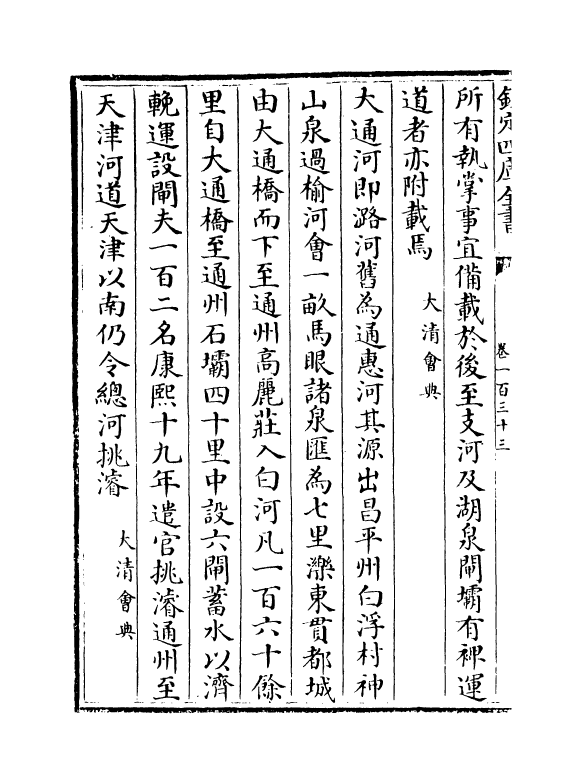 欽定四庫全書
卷一百三十三
所有執掌事宜備載於後至支河及湖泉閘壩有裨運
道者亦附載焉 大清會典
大通河即潞河舊為通惠河其源出昌平州白浮村神
山泉過榆河會一畝馬眼諸泉匯為七里濼東貫都城
由大通橋而下至通州高麗莊入白河凡一百六十餘
里自大通橋至通州石壩四十里中設六閘蓄水以濟
輓運設閘夫一百二名康熙十九年遣官挑濬通州至
天津河道天津以南仍令總河挑濬 大清會典